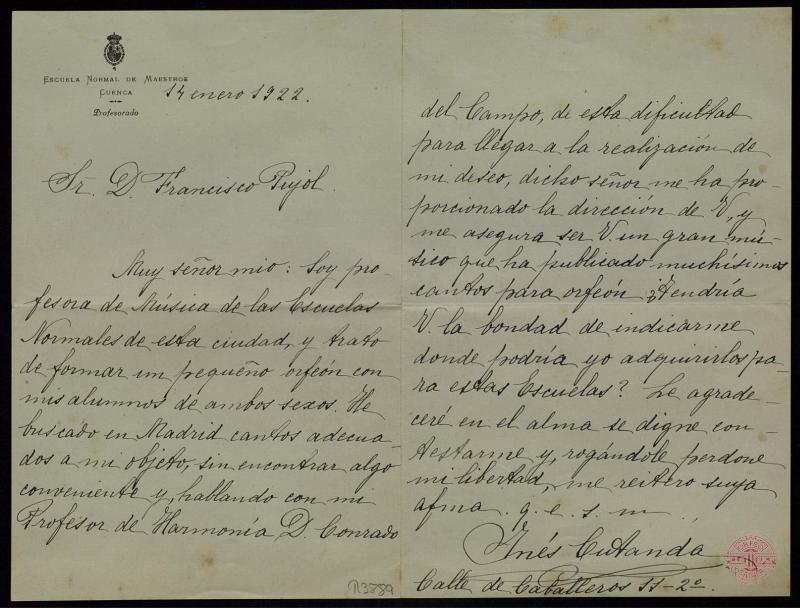 ESCUELA NORMAL DE MAESTROS
CUENCA
Profesorado
14 enero 1922.
Sr. D. Francisco Pujol.
Muy señor mio: Soy pro-
fesora de Música de las Escuelas
Normales de esta ciudad, y trato
de formar un pequeño orfeón con
mis alumnos de ambos sexos. He
buscado en Madrid cantos adecua-
dos a mi objeto, sin encontrar algo
conveniente y, hablando con mi
Profesor de Harmonía D. Conrado
del Campo, de esta dificultad
para llegar a la realización de
mi deseo, dicho señor me ha pro-
porcionado la dirección de V, y
me asegura ser V. un gran mú-
sico que ha publicado muchísimos
cantos para orfeón ¿Tendría
V. la bondad de indicarme
donde podría yo adquirirlos pa-
ra estas Escuelas? Le agrade-
ceré en el alma se digne con-
testarme y, rogándole perdone
mi libertad, me reitero suya
afma. q. e. s. m.
Inés Cutanda
Calle de Caballeros 11-2º.
R3889